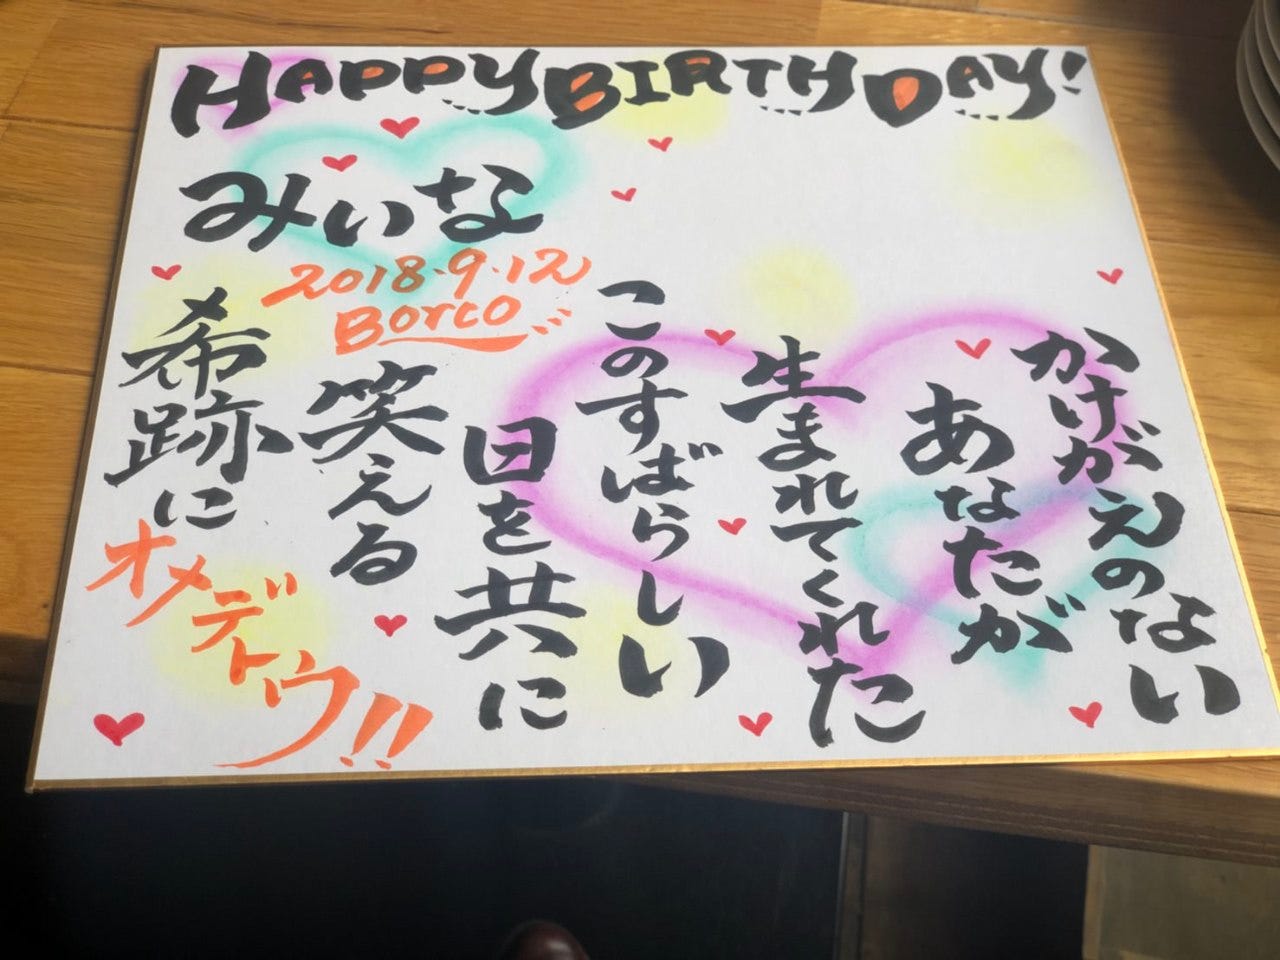 HAPPY BIRTHDAY!
みいな
2018.9.12
Borco
かけがえのない
あなたが
生まれてくれた
このすばらしい
日を共に
笑える
希跡に
オメデトウ!!